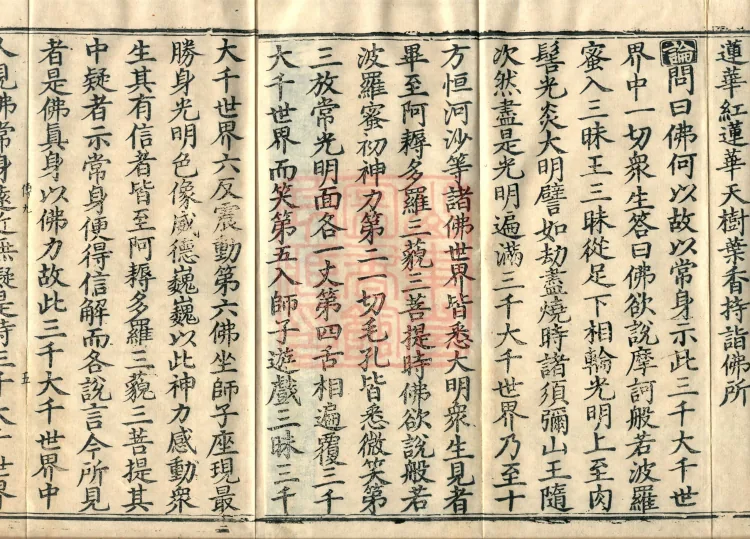 蓮華紅蓮華天樹葉香持詣佛所
論問曰佛何以故以常身示此三千大千世
界中一切衆生答曰佛欲說摩訶般若波羅
蜜入三昧王三昧從足下相輪光明上至肉
髻光炎大明譬如劫盡燒時諸須彌山王隨
次然盡是光明遍滿三千大千世界乃至十
方恒河沙等諸佛世界皆悉大明衆生見者
畢至阿耨多羅三藐三菩提時佛欲說般若
波羅蜜初神力第二一切毛孔皆悉微笑第
三放常光明面各一丈第四舌相遍覆三千
大千世界而笑第五入師子遊戲三昧三千
大千世界六反震動第六佛坐師子座現最
勝身光明色像威德巍巍以此神力感動衆
生其有信者皆至阿耨多羅三藐三菩提其
中疑者示常身便得信解而各說言今所見
者是佛真身以佛力故此三千大千世界中
人見佛常身遠近無疑是時三千大千世界